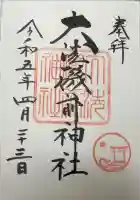 奉拝
大洗磯前神社
令和五年四月二十三日